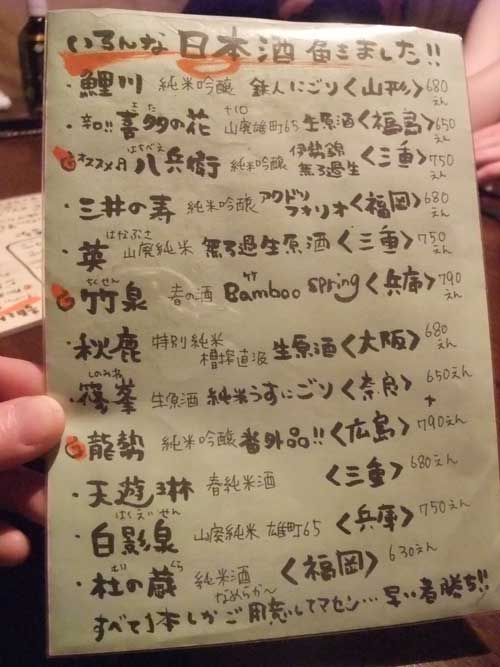 いろんな 日本酒 届きました!!
・鯉川 純米吟醸 鉄人にごり〈山形〉680えん
・辛口!! 喜多の花 +10 山廃雄町65 生原酒〈福島〉650えん
オススメ 八兵衛 純米吟醸 伊勢錦 無ろ過生〈三重〉750えん
・三井の寿 純米吟醸 アクドリフォリオ〈福岡〉680えん
・英 山廃純米 無ろ過生原酒〈三重〉750えん
竹泉 春の酒 竹 Bamboo spring〈兵庫〉790えん
・秋鹿 特別純米 槽搾直汲 生原酒〈大阪〉680えん
・篠峯 生原酒 純米うすにごり〈奈良〉650えん
龍勢 純米吟醸 番外品!!〈広島〉790えん
・天遊琳 春純米酒〈三重〉680えん
・白影泉 山廃純米 雄町65〈兵庫〉750えん
・杜の蔵 純米酒 なめらか〜〈福岡〉630えん
すべて1本しかご用意してマセン…早い者勝ち!!